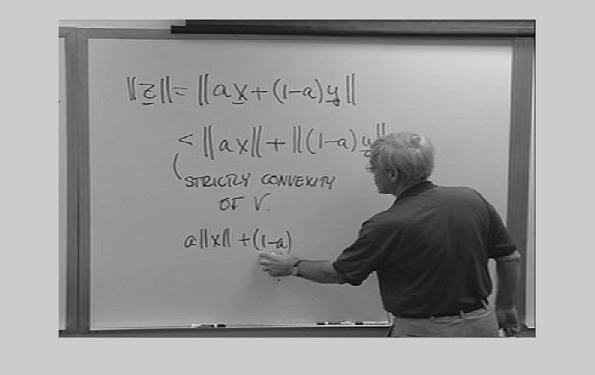 ||z|| = ||ax + (1-a)y||
< ||ax|| + ||(1-a)y||
STRICTLY CONVEXITY
OF V.
a||x|| + (1-a)